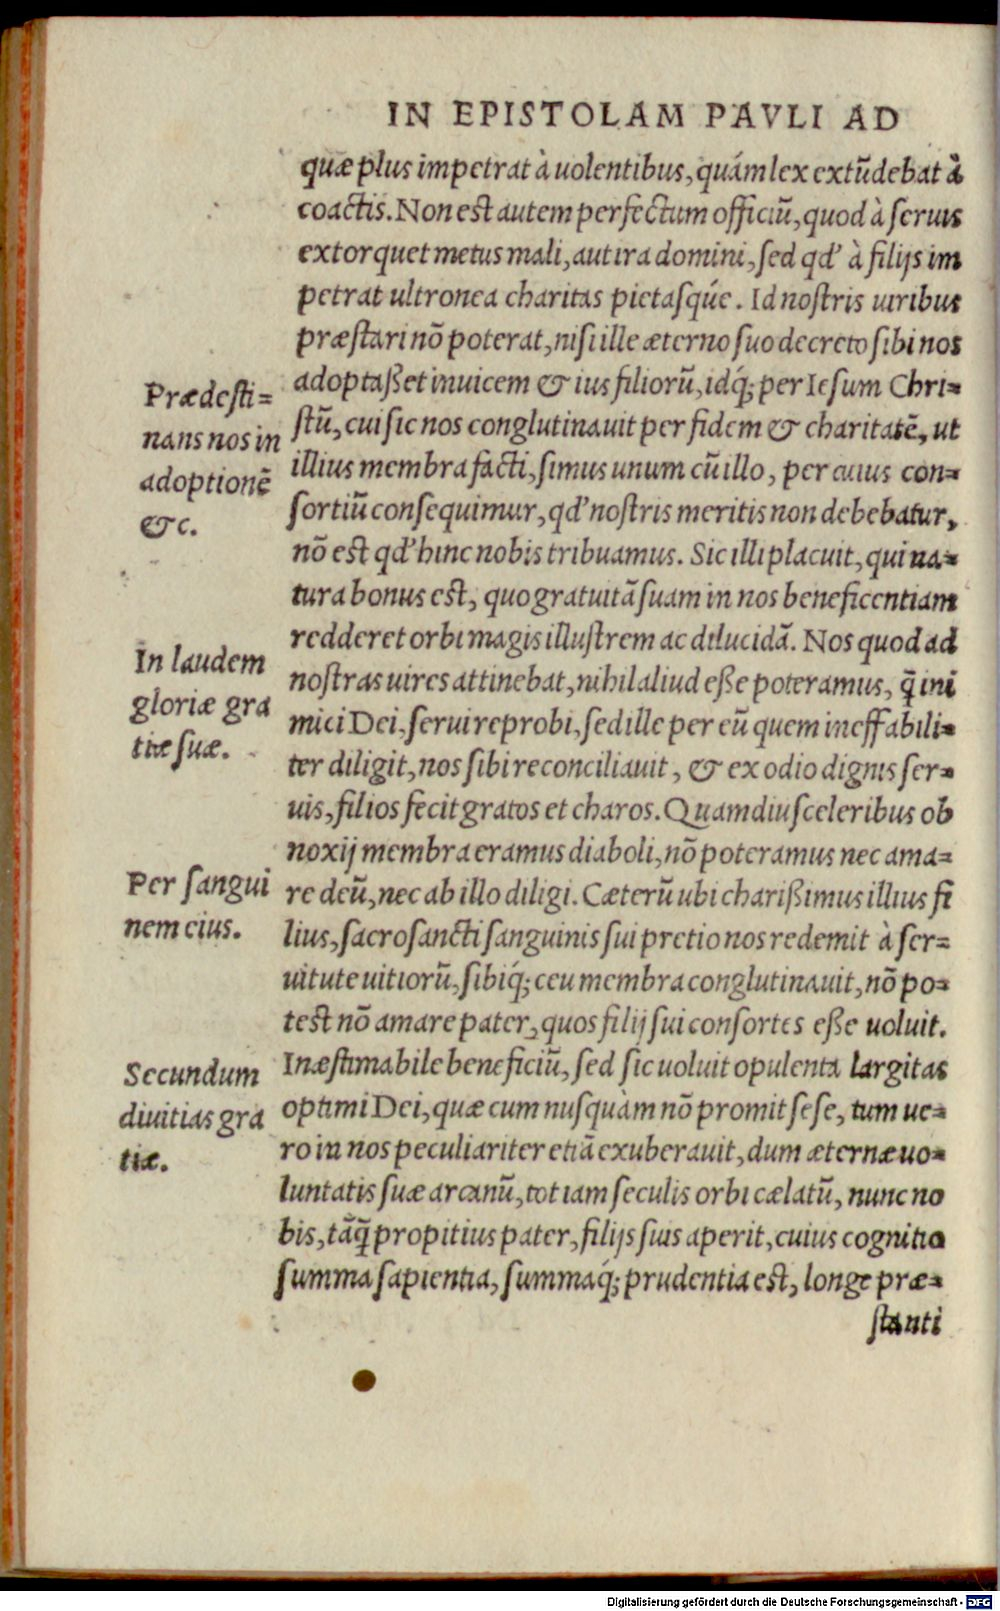 IN EPISTOLAM PAVLI AD
quæ plus impetrat à uolentibus, quám lex extũdebat à
coactis. Non est autem perfectum officiũ, quod à seruis
extorquet metus mali, aut ira domini, sed qđ à filijs im
petrat ultronea charitas pietasqúe. Id nostris uiribus
præstari nõ poterat, nisi ille æterno suo decreto sibi nos
adoptaßet inuicem & ius filiorũ, idq́; per Iesum Chri=
stũ, cui sic nos conglutinauit per fidem & charitatẽ, ut
illius membra facti, simus unum cũ illo, per cuius con=
sortiũ consequimur, qđ nostris meritis non debebatur,
nõ est qđ hinc nobis tribuamus. Sic illi placuit, qui na=
tura bonus est, quo gratuitã suam in nos beneficentiam
redderet orbi magis illustrem ac dilucidã. Nos quod ad
nostras uires attinebat, nihil aliud eße poteramus, q̃ ini
mici Dei, serui reprobi, sed ille per eũ quem ineffabili=
ter diligit, nos sibi reconciliauit, & ex odio dignis ser=
uis, filios fecit gratos et charos. Quamdiu sceleribus ob
noxij membra eramus diaboli, nõ poteramus nec ama=
re deũ, nec ab illo diligi. Cæterũ ubi charißimus illius fi
lius, sacrosancti sanguinis sui pretio nos redemit à ser=
uitute uitiorũ, sibiq́; ceu membra conglutinauit, nõ po=
test nõ amare pater, quos filij sui consortes eße uoluit.
Inæstimabile beneficiũ, sed sic uoluit opulenta largitas
optimi Dei, quæ cum nusquàm nõ promit sese, tum ue=
ro in nos peculiariter etiã exuberauit, dum æternæ uo=
luntatis suæ arcanũ, tot iam seculis orbi cælatũ, nunc no
bis, tãq̃ propitius pater, filijs suis aperit, cuius cognitio
summa sapientia, summaq́; prudentia est, longe præ=
stanti
Prædesti=
nans nos in
adoptionẽ
&c.
In laudem
gloriæ gra
tiæ suæ.
Per sangui
nem eius.
Secundum
diuitias gra
tiæ.
Digitalisierung gefördert durch die Deutsche Forschungsgemeinschaft - DFG